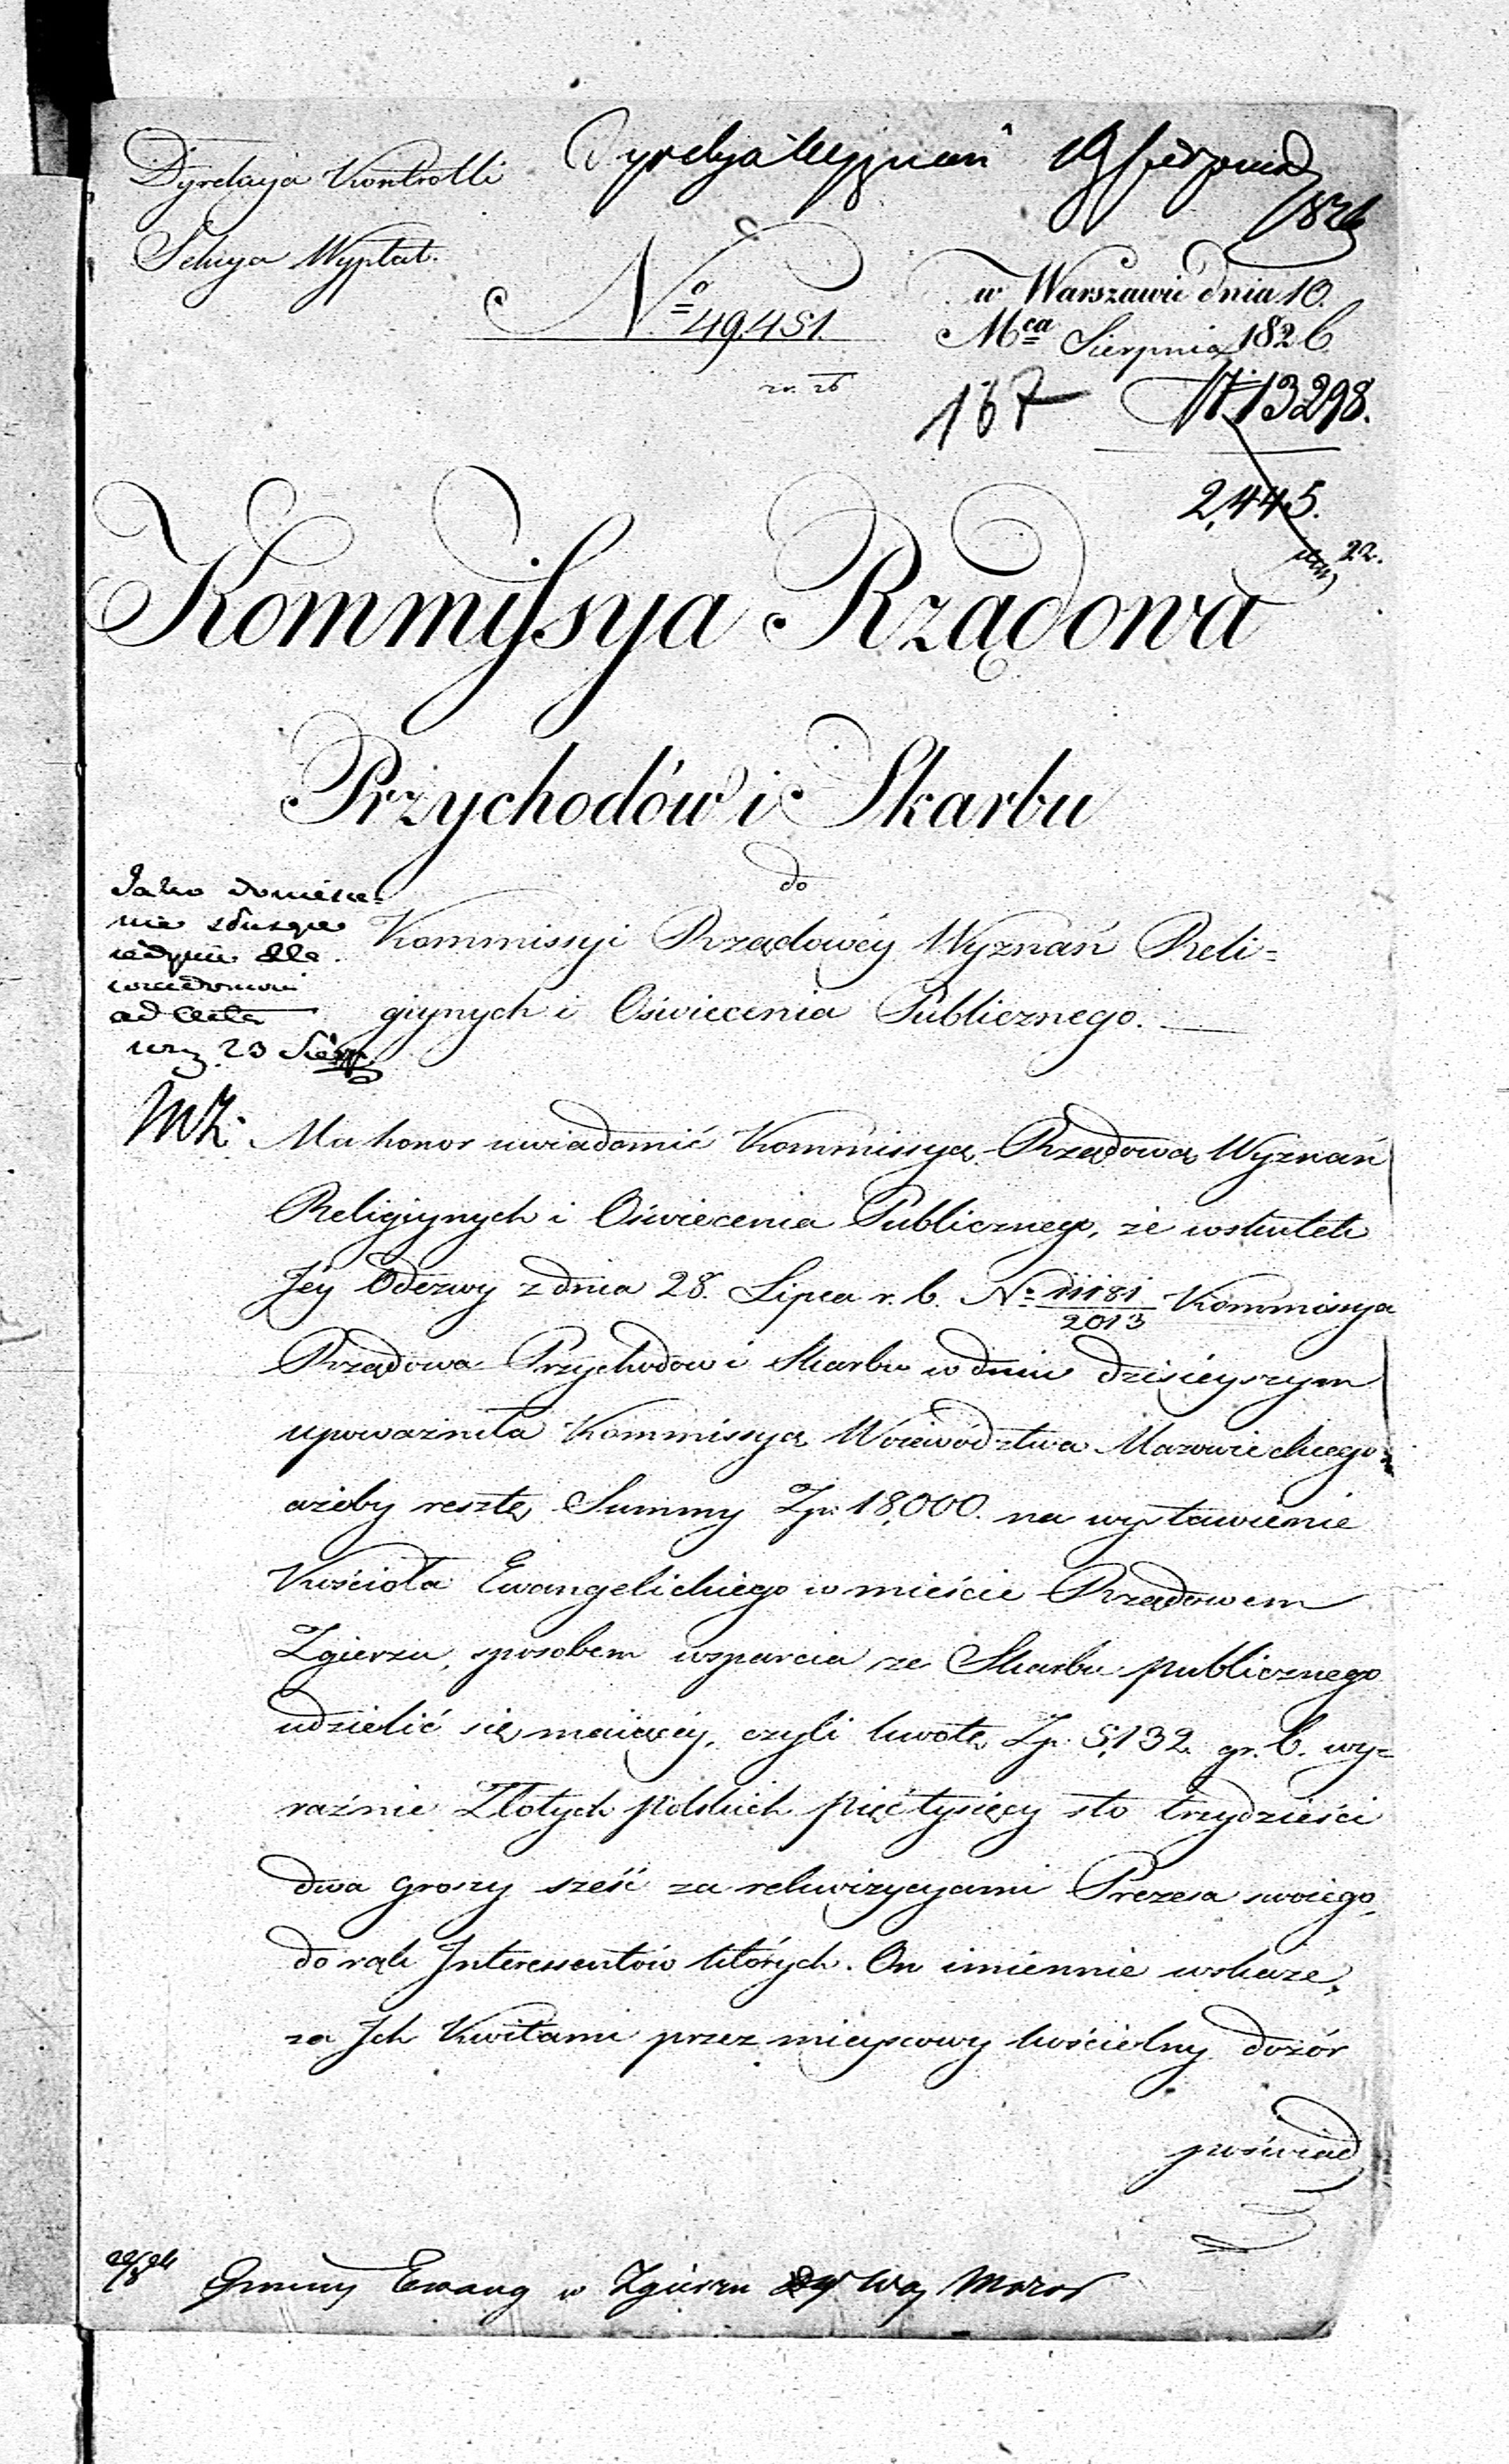 Dyrekcya Kontrolli
Sekcya Wypłat.
Dyrekcya Wyznań 19 Sierpnia
1826
No 49,451.
w Warszawie dnia 10.
Mca Sierpnia 1826
167
N. 13298.
2,445.
22.
Kommissya Rządowa
Przychodów i Skarbu
do
Kommissyi Rządowéy Wyznań Reli=
giynych i Oświecenia Publicznego.
Jako doniesie=
nie służące
jedynie dla
wiadomości
ad acta
23 Sierp.
Ma honor uwiadomić Kommissyą Rządową Wyznań
Religiynych i Oświecenia Publicznego, że wskutek
Jéy Odezwy z dnia 28. Lipca r. b. No 11181/2013 Kommissya
Rządowa Przychodow i Skarbu w dniu dzisieyszym
upoważniła Kommissyą Woiewództwa Mazowieckiego,
ażeby resztę Summy Zp. 18,000. na wystawienie
Kościoła Ewangelickiego w mieście Rządowem
Zgierzu, sposobem wsparcia ze Skarbu publicznego
udzielić się maiącéy, czyli kwotę Zp. 5,132. gr. 6. wy=
raźnie Złotych polskich pięć tysięcy sto trzydzieści
dwa groszy sześć za rekwizycyami Prezesa swoiego,
do rąk Interessentów których On imiennie wskaże,
za Ich Kwitami przez mieyscowy kościelny dozór
poświad
Gminy Ewang w Zgierzu Woj Mazow